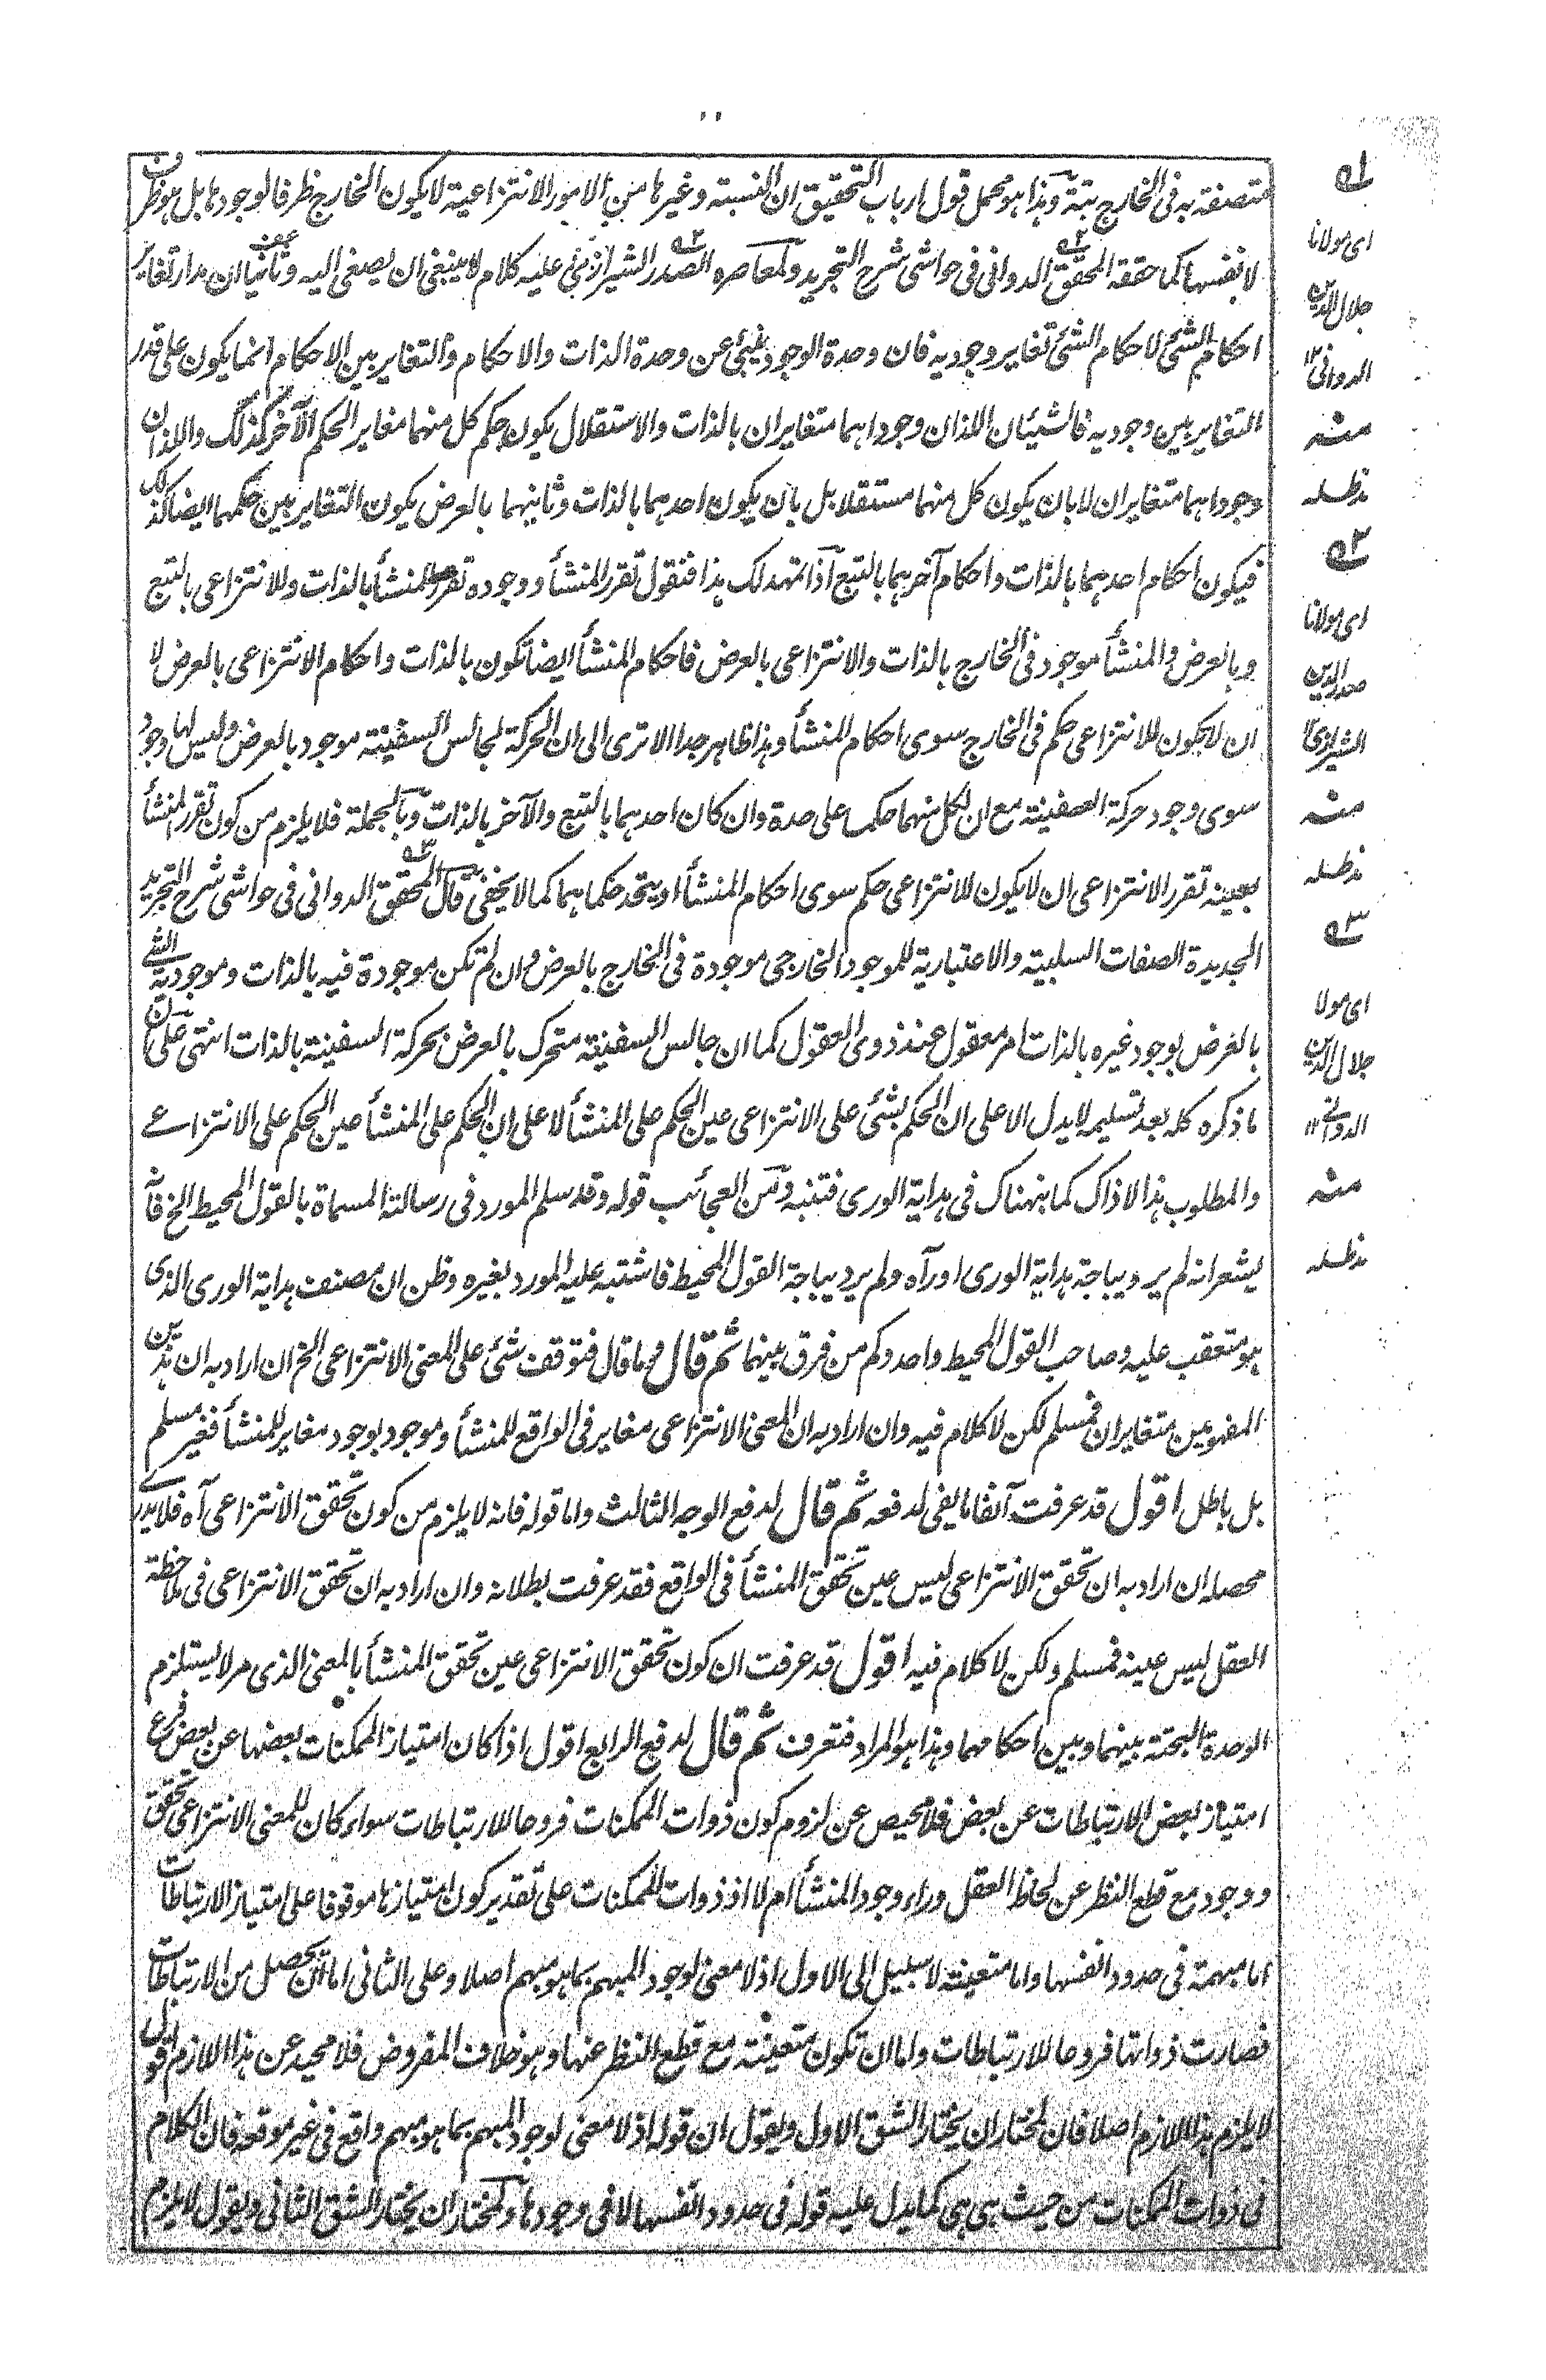 متصفة به فى الخارج بتة وهذا هو محمل قول ارباب التحقيق ان النسبة وغيرها من الامور الانتزاعية لا يكون الخارج ظرفا لوجودها بل هو ظرف
لانفسها كما حققه المحقق الدوانى فى حواشى شرح التجريد ولمعاصره الصدر الشيرازى عليه كلام لا ينبغى ان يصغى اليه وثانيا ان مدار تغاير
احكام الشئ لاحكام الشئ تغاير وجوديه فان وحدة الوجود ينبئ عن وحدة الذات والاحكام والتغاير بين الاحكام انما يكون على قدر
التغاير بين وجوديه فالشيئان اللذان وجوداهما متغايران بالذات والاستقلال يكون حكم كل منهما مغاير الحكم الآخر كذلك واللذان
وجوداهما متغايران لا بان يكون كل منهما مستقلا بل بان يكون احدهما بالذات وثانيهما بالعرض يكون التغاير بين حكمهما ايضا كذلك
فيكون احكام احدهما بالذات واحكام آخرهما بالتبع اذا تمهد لك هذا فنقول تقرر المنشأ ووجوده تقرر للمنشأ بالذات وللانتزاعى بالتبع
وبالعرض والمنشأ موجود فى الخارج بالذات والانتزاعى بالعرض فاحكام المنشأ ايضا تكون بالذات واحكام الانتزاعى بالعرض لا
ان لا يكون للانتزاعى حكم فى الخارج سوى احكام المنشأ وهذا ظاهر جدا الا ترى الى ان الحركة لجالس السفينة موجود بالعرض وليس لها وجود
سوى وجود حركة السفينة مع ان لكل منهما حكما على حدة وان كان احدهما بالتبع والآخر بالذات وبالجملة فلا يلزم من كون تقرر المنشأ
بعينه تقرر الانتزاعى ان لا يكون للانتزاعى حكم سوى احكام المنشأ او يتحد حكماهما كما لا يخفى قال المحقق الدوانى فى حواشى شرح التجريد
الجديدة الصفات السلبية والاعتبارية للموجود الخارجى موجودة فى الخارج بالعرض وان لم تكن موجودة فيه بالذات وموجودية الشئ
بالعرض بوجود غيره بالذات امر معقول عند ذوى العقول كما ان جالس السفينة متحرك بالعرض بحركة السفينة بالذات انتهى على ان
ما ذكره كله بعد تسليمه لا يدل الا على ان الحكم بشئ على الانتزاعى عين الحكم على المنشأ لا على ان الحكم على المنشأ عين الحكم على الانتزاعے
والمطلوب هذا لا ذاك كما بنهناك فى هداية الورى فتنبه ومن العجائب قوله وقد سلم المورد فى رسالته المسماة بالقول المحيط الخ فانه
ليشعر انه لم ير ديباجة هداية الورى او رآه ولم ير ديباجة القول المحيط فاشتبه عليه المورد بغيره وظن ان مصنف هداية الورى الذى
هو متعقب عليه وصاحب القول المحيط واحد وكم من فرق بينهما ثم قال وما قال فتوقف شئ على المعنى الانتزاعى الخ ان اراد به ان هذين
المفهومين متغايران فمسلم لكن لا كلام فيه وان اراد به ان المعنى الانتزاعى مغاير فى الواقع للمنشأ وموجود بوجود مغاير للمنشأ فغير مسلم
بل باطل اقول قد عرفت آنفا ما يفى لدفعه ثم قال لدفع الوجه الثالث واما قوله فانه لا يلزم من كون تحقق الانتزاعى آه فلا يدرے
محصله ان اراد به ان تحقق الانتزاعى ليس عين تحقق المنشأ فى الواقع فقد عرفت بطلانه وان اراد به ان تحقق الانتزاعى فى ملاحظة
العقل ليس عينه فمسلم ولكن لا كلام فيه اقول قد عرفت ان كون تحقق الانتزاعى عين تحقق المنشأ بالمعنى الذى مر لا يستلزم
الوحدة البحتة بينهما وبين احكامهما وهذا هو المراد فتعرف ثم قال لدفع الرابع اقول اذا كان امتياز الممكنات بعضها عن بعض فرع
امتياز بعض الارتباطات عن بعض فلا محيص عن لزوم كون ذوات الممكنات فروعا للارتباطات سواء كان للمعنى الانتزاعى تحقق
ووجود مع قطع النظر عن لحاظ العقل وراء وجود المنشأ ام لا اذ ذوات الممكنات على تقدير كون امتيازها موقوفا على امتياز الارتباطات
اما مبهمة فى حدود انفسها واما متعينة لا سبيل الى الاول اذ لا معنى لوجود المبهم بما هو مبهم اصلا وعلى الثانى اما ان يحصل من الارتباطات
فصارت ذواتها فروعا للارتباطات واما ان تكون متعينة مع قطع النظر عنها وهو خلاف المفروض فلا محيد عن هذا اللازم اقول
لا يلزم هذا اللازم اصلا فان لمختار ان يختار الشق الاول ويقول ان قوله اذ لا معنى لوجود المبهم بما هو مبهم واقع فى غير موقعه فان الكلام
فى ذوات الممكنات من حيث هى هى كما يدل عليه قوله فى حدود انفسها لا فى وجودها ولمختار ان يختار الشق الثانى ويقول لا يلزم
اى مولانا
جلال الدين
الدوانى ١٢
منه
مدظله
اى مولانا
صدر الدين
الشيرازى
منه
مدظله
اى مولانا
جلال الدين
الدوانے ١٢
منه
مدظله